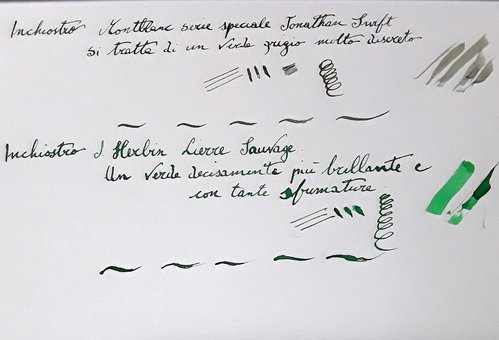 Inchiostro Montblanc serie speciale Jonathan Swift
si tratta di un verde grigio molto discreto
Inchiostro J. Herbin Lierre Sauvage
Un verde decisamente più brillante e
con tante sfumature